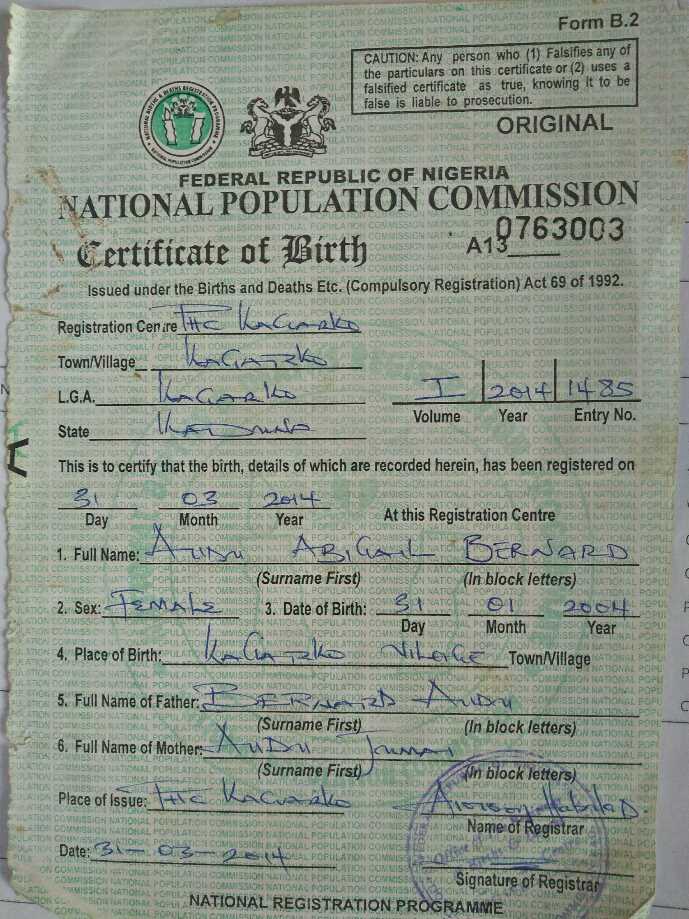 Form B.2
CAUTION: Any person who (1) Falsifies any of
the particulars on this certificate or (2) uses a
falsified certificate as true, knowing it to be
false is liable to prosecution.
ORIGINAL
FEDERAL REPUBLIC OF NIGERIA
NATIONAL POPULATION COMMISSION
Certificate of Birth A13 0763003
Issued under the Births and Deaths Etc. (Compulsory Registration) Act 69 of 1992.
Registration Centre PHC KAGARKO
Town/Village KAGARKO
L.G.A. KAGARKO I 2014 1485
Volume Year Entry No.
State KADUNA
This is to certify that the birth, details of which are recorded herein, has been registered on
31 03 2014
Day Month Year At this Registration Centre
1. Full Name: AUDU ABIGAIL BERNARD
(Surname First) (In block letters)
2. Sex: FEMALE 3. Date of Birth: 31 01 2004
Day Month Year
4. Place of Birth: KAGARKO VILLAGE Town/Village
5. Full Name of Father: BERNARD AUDU
(Surname First) (In block letters)
6. Full Name of Mother: AUDU JUMAI
(Surname First) (In block letters)
Place of Issue: PHC KAGARKO
Name of Registrar
Date: 31-03-2014
Signature of Registrar
NATIONAL REGISTRATION PROGRAMME